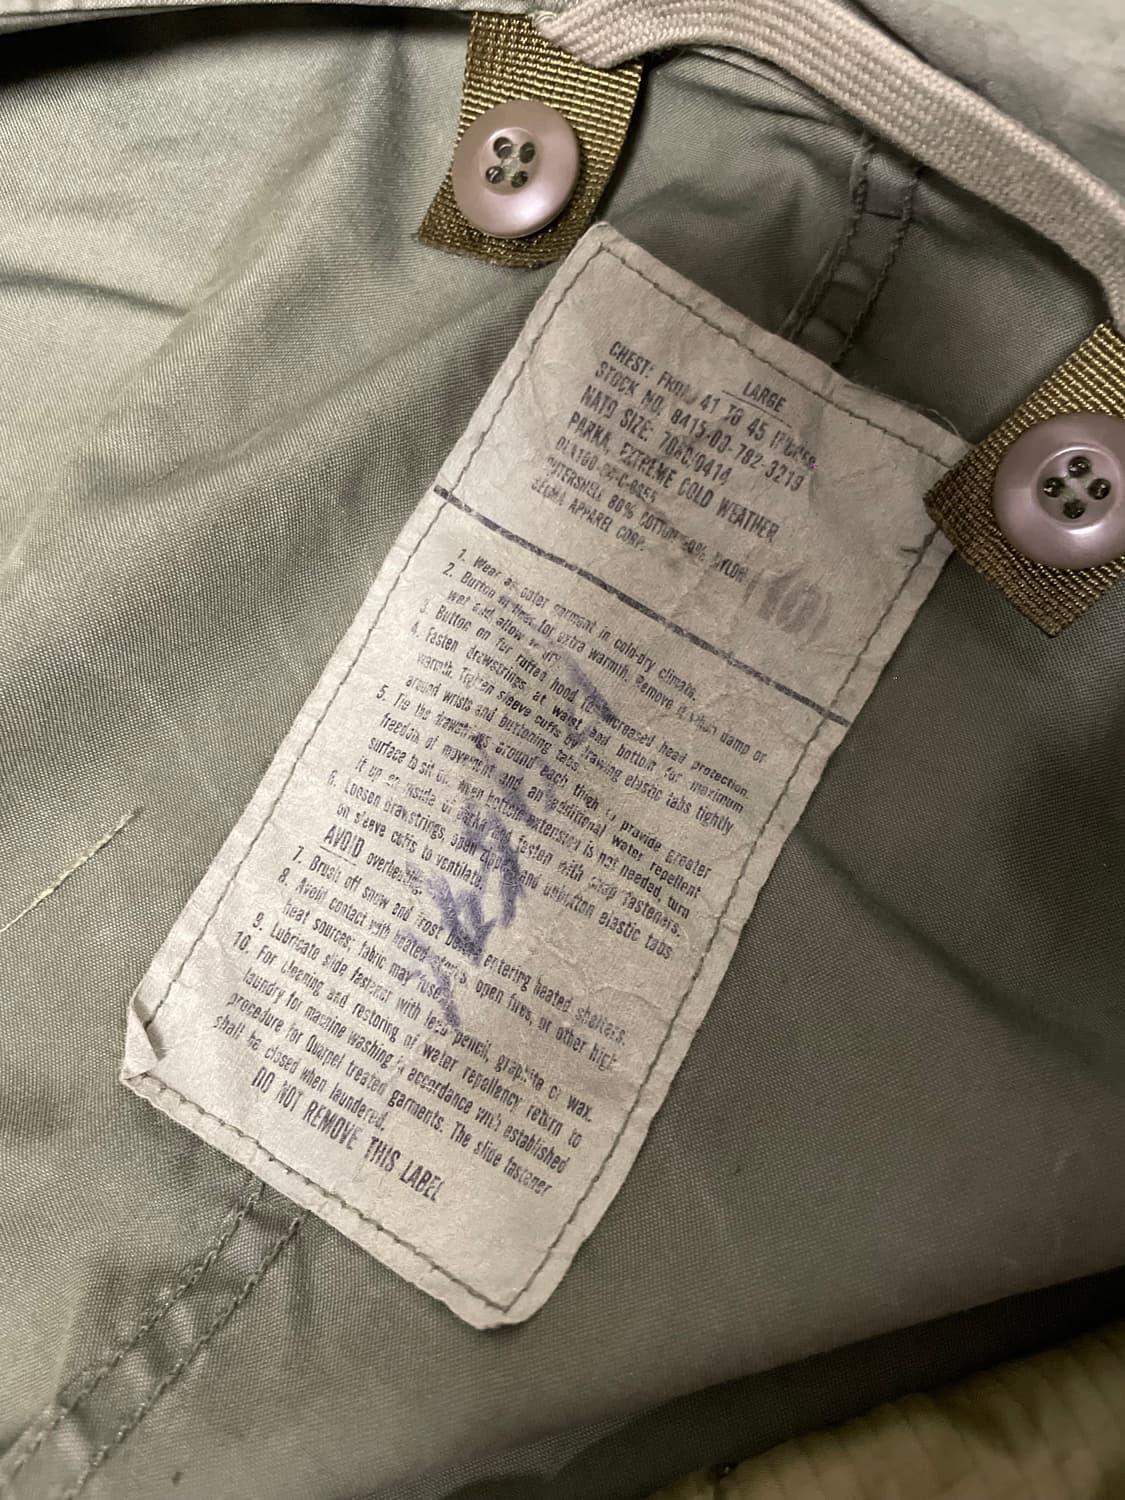 LARGE
CHEST: FROM 41 TO 45 INCHES
STOCK NO. 8415-00-782-3219
NATO SIZE: 7080/9414
PARKA, EXTREME COLD WEATHER
COTTON NYLON
APPAREL CORP.
1. Wear as outer garment in cold-dry climate.
2. Button in liner for extra warmth. Remove it when damp or
wet and allow to dry.
3. Button on fur ruffed hood for increased head protection.
4. Fasten drawstrings at waist and bottom for maximum
warmth. Tighten sleeve cuffs by drawing elastic tabs tightly
around wrists and buttoning tabs.
5. Tie the drawstrings around each thigh to provide greater
freedom of movement and an additional water repellent
surface to sit on. When bottom extension is not needed, turn
it up on inside of parka and fasten with snap fasteners.
6. Loosen drawstrings open zipper and unbutton elastic tabs
on sleeve cuffs to ventilate.
AVOID overheating.
7. Brush off snow and frost before entering heated shelters.
8. Avoid contact with heated stoves, open fires, or other high
heat sources; fabric may fuse.
9. Lubricate slide fastener with lead pencil, graphite or wax.
10. For cleaning and restoring of water repellency return to
laundry for machine washing in accordance with established
procedure for Quarpel treated garments. The slide fastener
shall be closed when laundered.
DO NOT REMOVE THIS LABEL